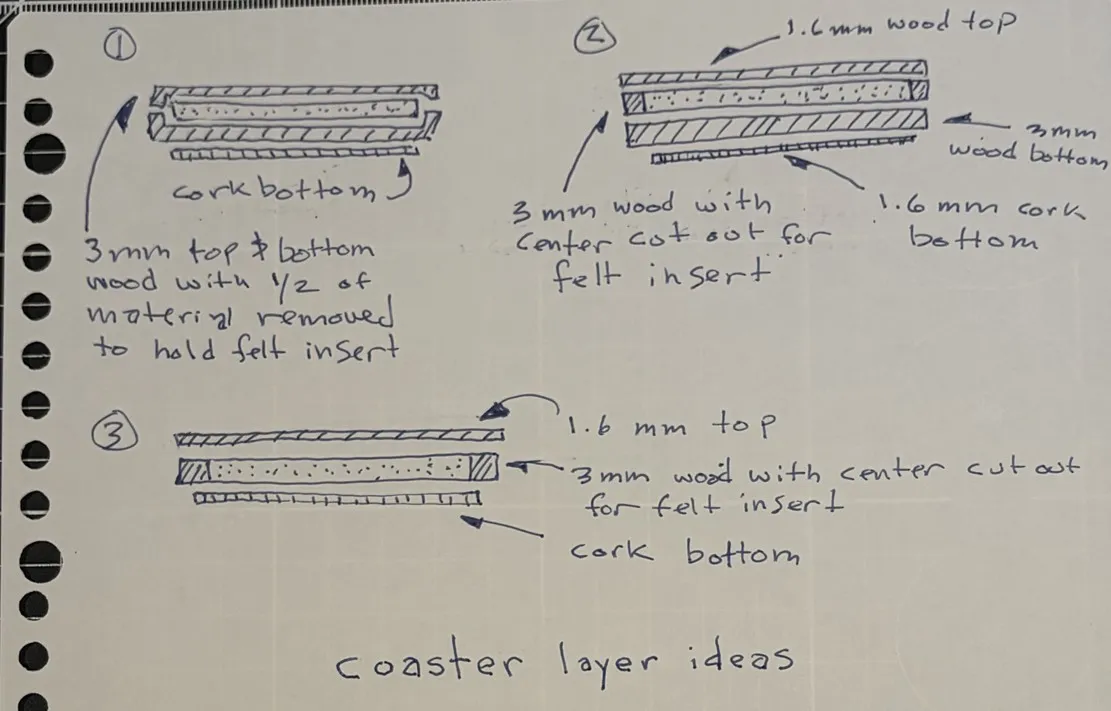 1
cork bottom
3mm top & bottom
wood with 1/2 of
material removed
to hold felt insert
2
1.6 mm wood top
3mm
wood bottom
3 mm wood with
center cut out for
felt insert
1.6 mm cork
bottom
3
1.6 mm top
3mm wood with center cut out
for felt insert
cork bottom
coaster layer ideas